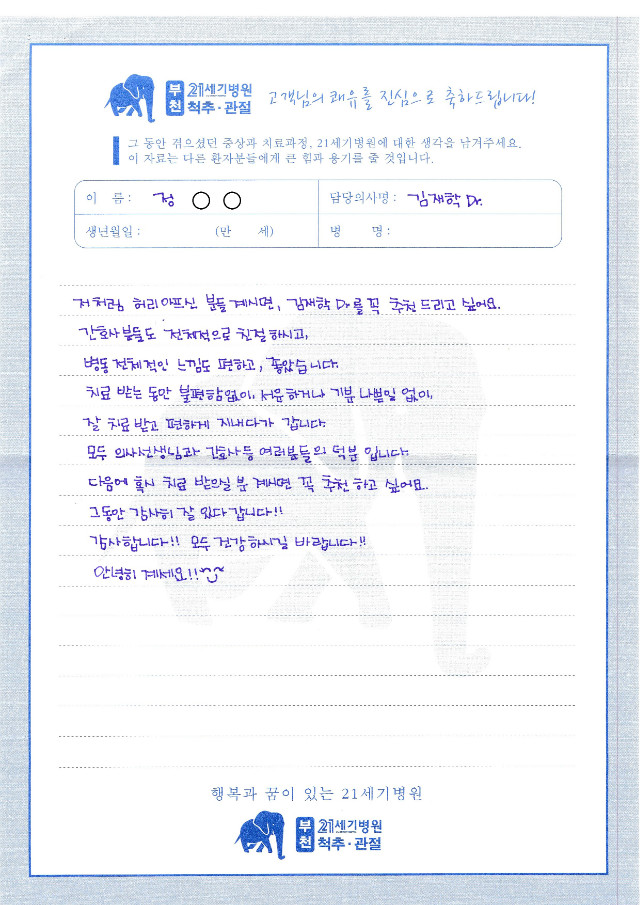 부천 21세기병원 척추·관절 고객님의 쾌유를 진심으로 축하드립니다!
그 동안 겪으셨던 증상과 치료과정, 21세기병원에 대한 생각을 남겨주세요.
이 자료는 다른 환자분들에게 큰 힘과 용기를 줄 것입니다.
이 름 : 정 ○ ○ 담당의사명 : 김재학 Dr.
생년월일 : (만 세) 병 명 :
저처럼 허리아프신 분들 계시면, 김재학 Dr를 꼭 추천 드리고 싶어요.
간호사분들도 전체적으로 친절하시고,
병동 전체적인 느낌도 편하고, 좋았습니다.
치료 받는 동안 불편함없이, 서운하거나 기분 나쁨일 없이,
잘 치료받고 편하게 지내다가 갑니다.
모두 의사선생님과 간호사등 여러분들의 덕분 입니다.
다음에 혹시 치료 받으실 분 계시면 꼭 추천 하고 싶어요.
그동안 감사히 잘 있다 갑니다!!
감사합니다!! 모두 건강하시길 바랍니다!!
안녕히 계세요!!
행복과 꿈이 있는 21세기병원
부천 21세기병원 척추·관절